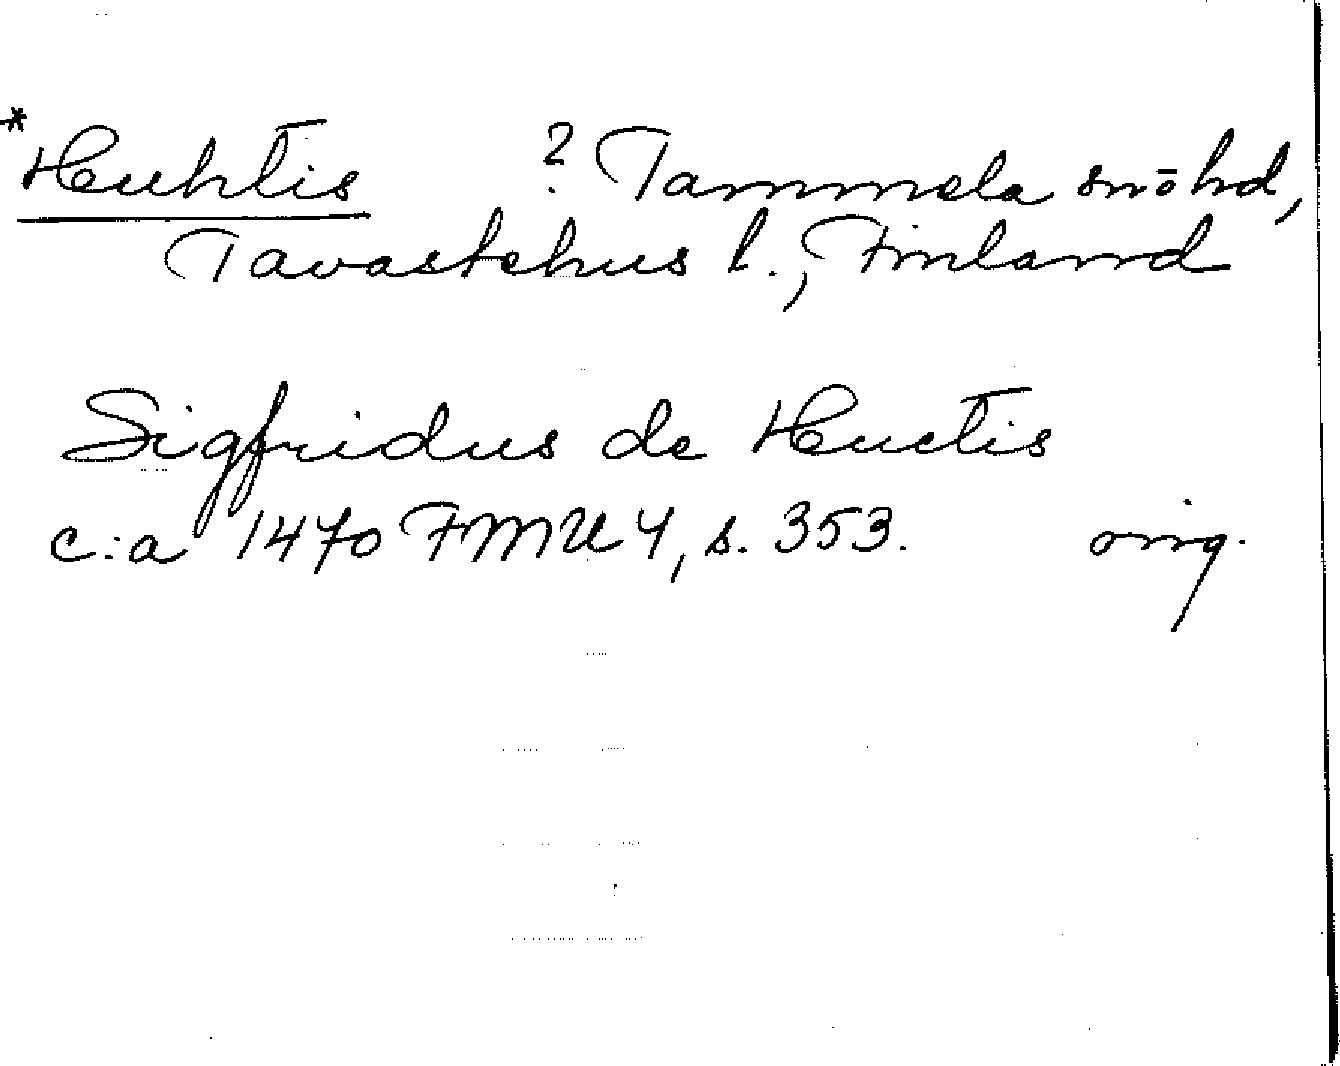 *Huhtis ? Tammela snöhd,
Tavastehus l., Finland
Sigfridus de Huctis
c:a 1470 FMU 4, s. 353. orig.